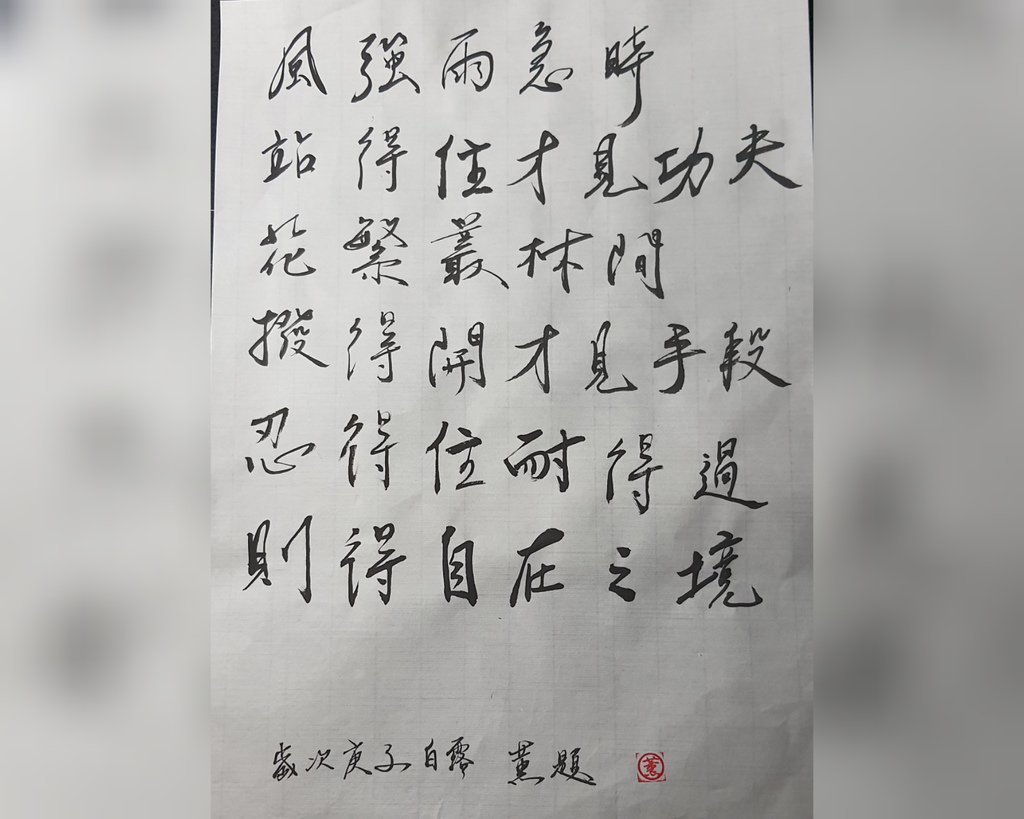 風強雨急時
站得住才見功夫
花繁叢林間
撥得開才見手段
忍得住耐得過
則得自在之境
歲次庚子白露 薰題
薰